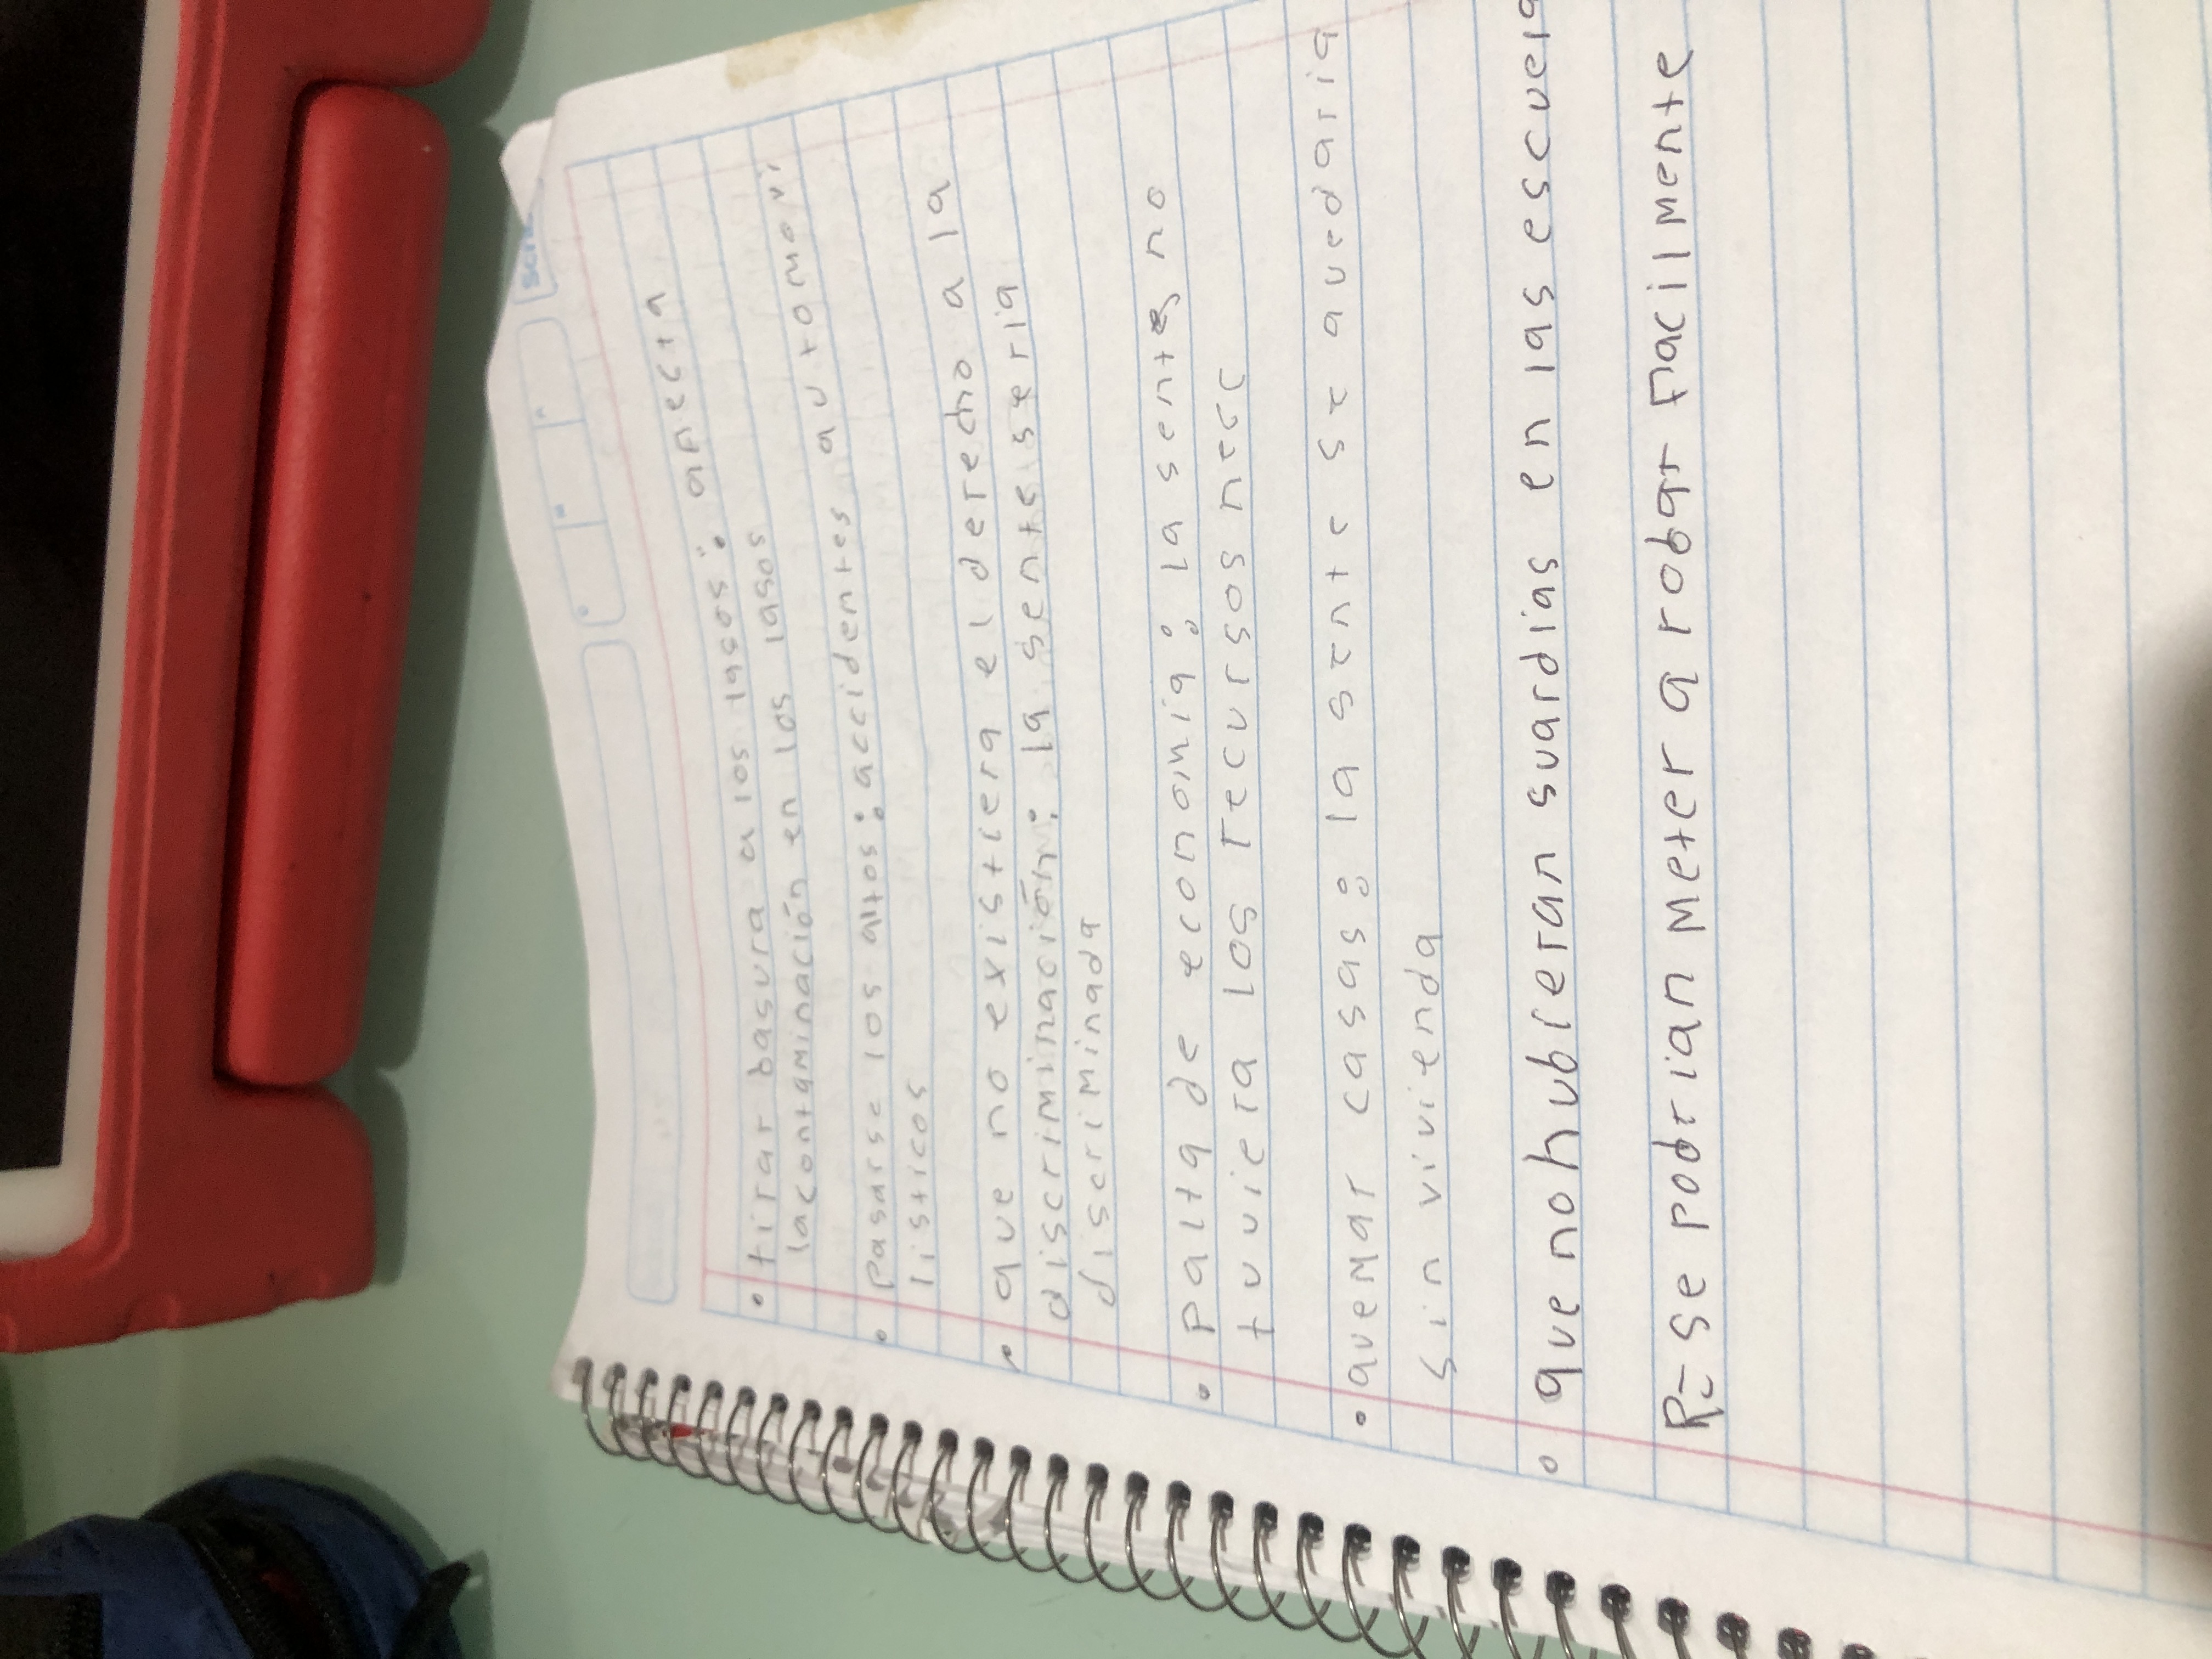 • tirar basura a los lagos: afecta
la contaminación en los lagos
• pasarse los altos: accidentes automovi
listicos
• que no existiera el derecho a la
discriminación: la gente seria
discriminada
• falta de economia: la gente no
tuviera los recursos necc
• quemar casas: la gente se quedaria
sin vivienda
• que no hubieran guardias en las escuela
R= se podrian meter a robar facilmente